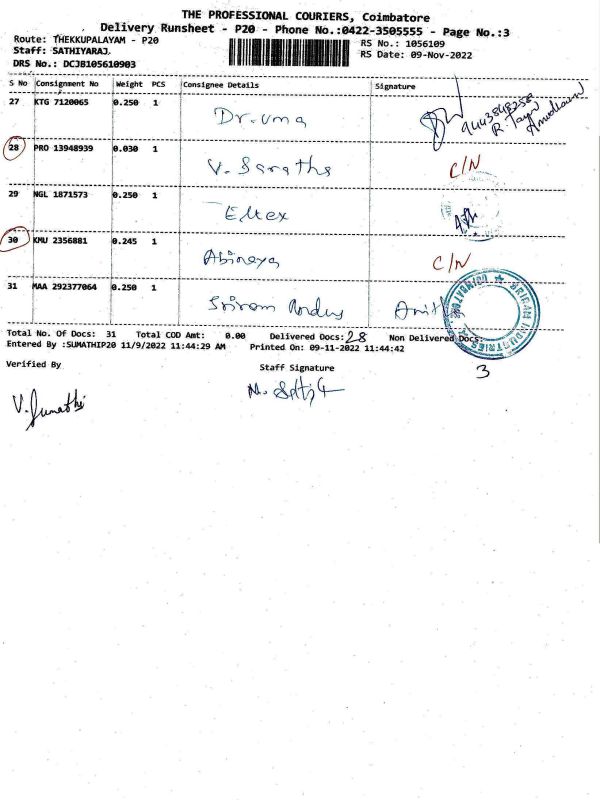 THE PROFESSIONAL COURIERS, Coimbatore
Delivery Runsheet - P20 - Phone No.:0422-3505555 - Page No.:3
Route: THEKKUPALAYAM - P20
RS No.: 1056109
Staff: SATHIYARAJ.
RS Date: 09-Nov-2022
DRS No.: DCJB105610903
S No Consignment No Weight PCS Consignee Details Signature
27 KTG 7120065 0.250 1 Dr. uma 9443848258
28 PRO 13948939 0.030 1 V. Saratha C/N
29 NGL 1871573 0.250 1 Eltex
30 KMU 2356881 0.245 1 Abinaya C/N
31 MAA 292377064 0.250 1 Sriram
SRIRAM INDUSTRIES
Total No. Of Docs: 31 Total COD Amt: 0.00 Delivered Docs: 28 Non Delivered Docs: 3
Entered By :SUMATHIP20 11/9/2022 11:44:29 AM Printed On: 09-11-2022 11:44:42
Verified By
Staff Signature
V. Sumathi